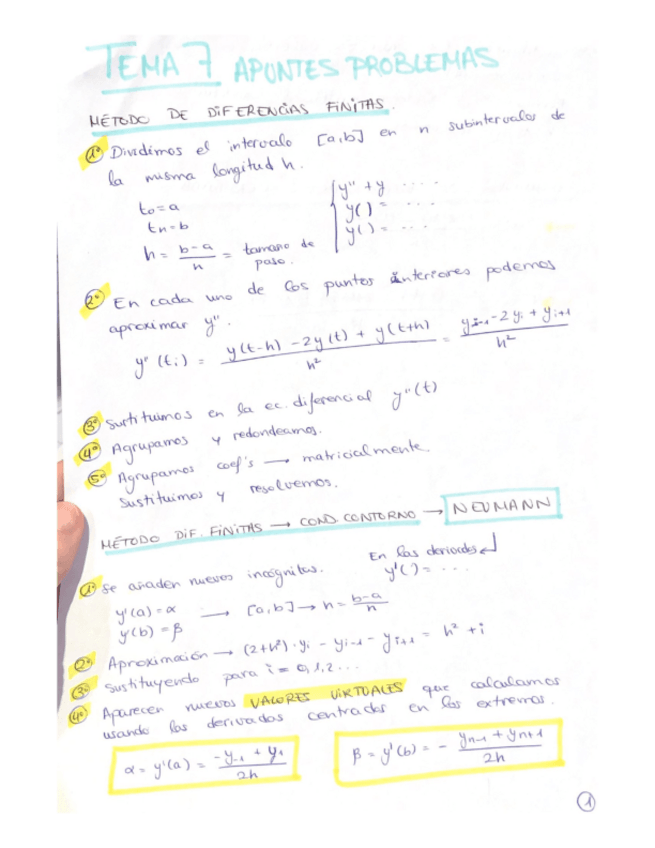 TEMA 7 APUNTES PROBLEMAS
MÉTODO DE DIFERENCIAS FINITAS.
1º Dividimos el intervalo [a,b] en n subintervalos de
la misma longitud h.
t₀ = a
tn = b
h = (b-a)/n = tamaño de paso.
{ y'' + y ....
y( ) = ...
y( ) = ...
2º En cada uno de los puntos interiores podemos
aproximar y''.
y''(ti) = (y(t-h) - 2y(t) + y(t+h))/h² = (yi-1 - 2yi + yi+1)/h²
3º Sustituimos en la ec. diferencial y''(t)
4º Agrupamos y redondeamos.
5º Agrupamos coef's → matricialmente.
Sustituimos y resolvemos.
MÉTODO DIF. FINITAS → COND. CONTORNO → NEUMANN
En las derivadas ↲
y'( ) = ...
1º Se añaden nuevas incógnitas.
y'(a) = α → [a,b] → h = (b-a)/n
y'(b) = β
2º Aproximación → (2+h²)·yi - yi-1 - yi+1 = h² + i
3º Sustituyendo para i = 0,1,2...
4º Aparecen nuevos VALORES VIRTUALES que calculamos
usando las derivadas centradas en los extremos.
α = y'(a) = (-y-1 + y1)/2h
β = y'(b) = - (yn-1 + yn+1)/2h
1